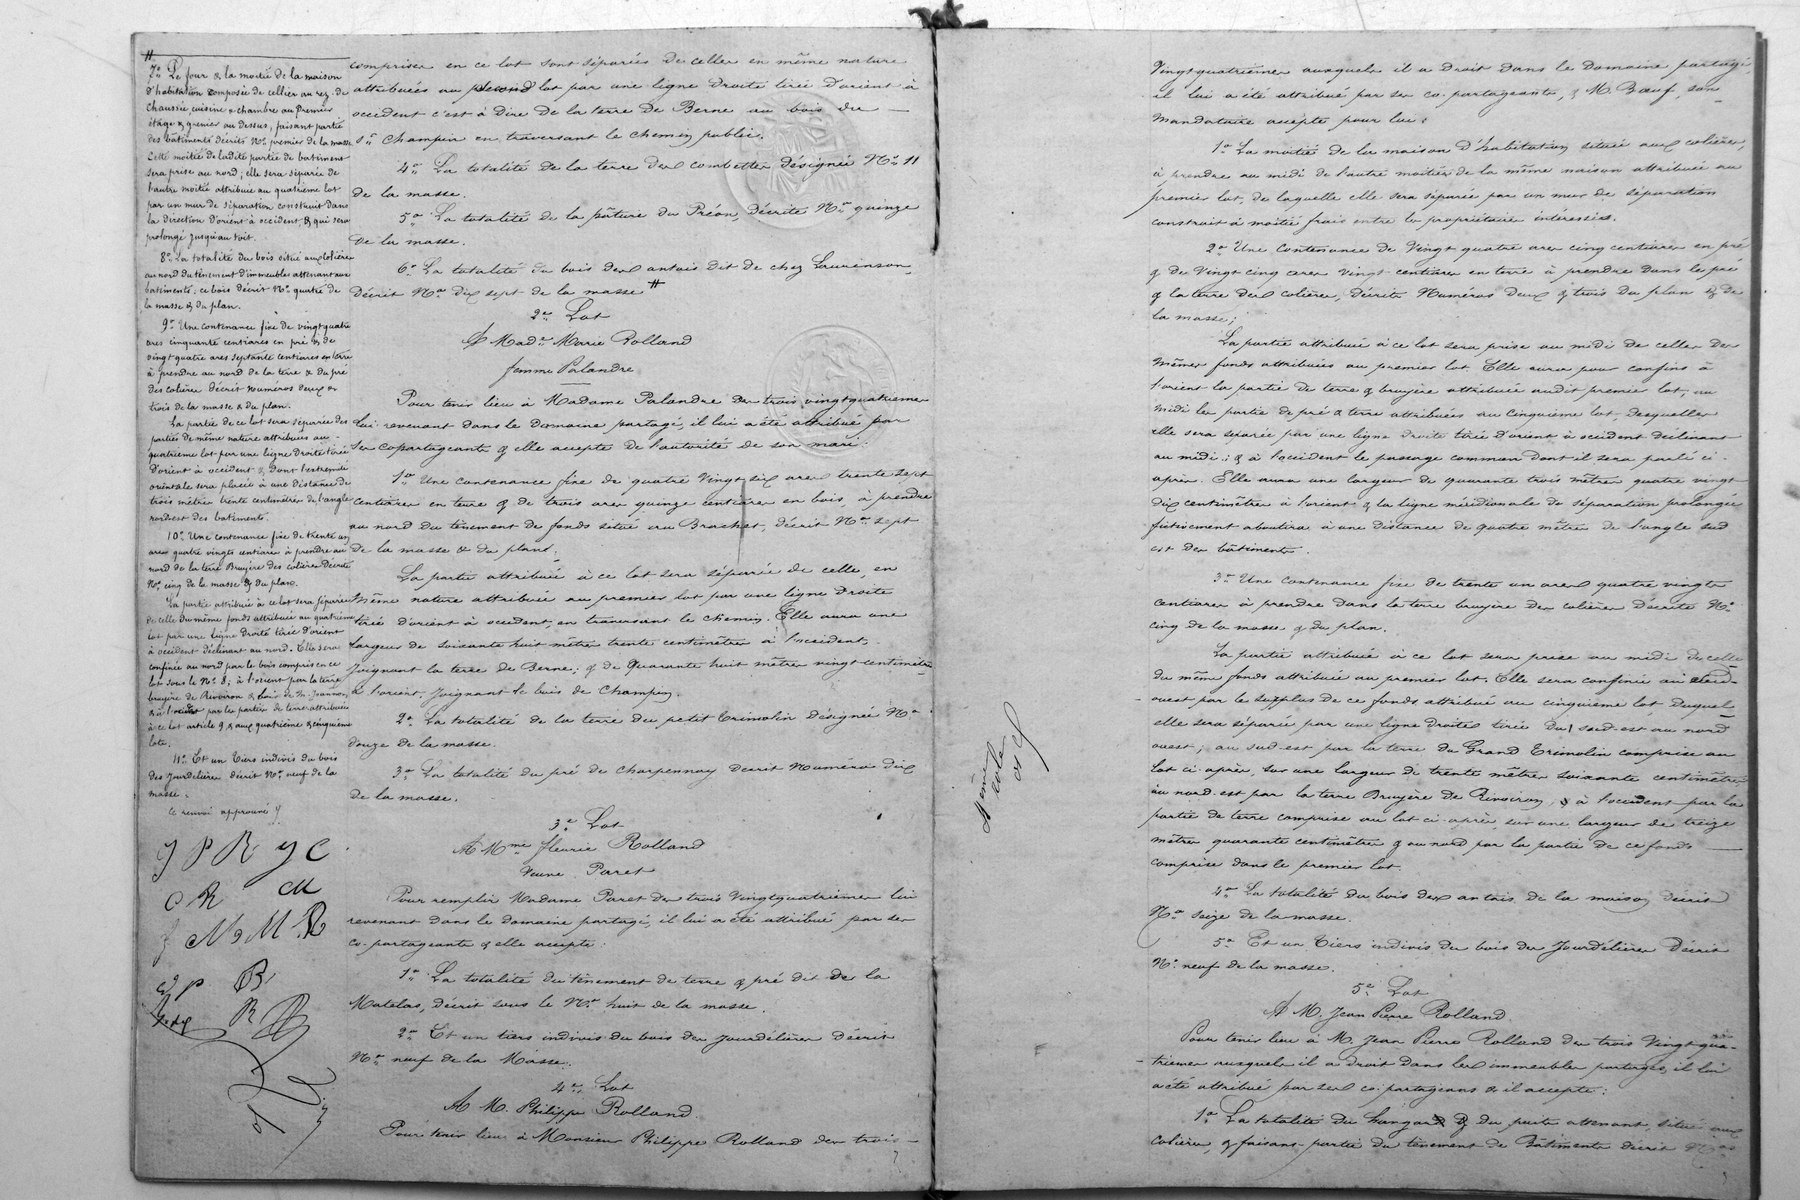 "
7° Le four & la moitié de la maison
d'habitation composée de cellier au rez-de
chaussée, cuisine & chambre au premier
étage & grenier au dessus, faisant partie
des bâtiments décrits N° premier de la masse
Cette moitié de ladite partie de batiment
sera prise au nord; elle sera séparée de
l'autre moitié attribuée au quatrième lot
par un mur de séparation construit dans
la direction d'orient à occident & qui sera
prolongé jusqu'au toit.
8° La totalité du bois situé aux colières
au nord du tènement d'immeubles attenant aux
batiments; ce bois décrit N° quatre de
la masse & du plan.
9° Une contenance fixe de vingt quatre
ares cinquante centiares en pré & de
vingt quatre ares septante centiares en terre
à prendre au nord de la terre & du pré
des colières décrit numéros deux &
trois de la masse & du plan.
La partie de ce lot sera séparée des
parties de même nature attribuées au
quatrième lot par une ligne droite tirée
d'orient à occident & dont l'extrémité
orientale sera placée à une distance de
trois mètres trente centimètres de l'angle
nord est des batiments.
10° Une contenance fixe de trente un
ares quatre vingts centiares à prendre au
nord de la terre Bruyère des colières décrite
N° cinq de la masse & du plan.
La partie attribuée à ce lot sera séparée
de celle du même fonds attribuée au quatrième
lot par une ligne droite tirée d'orient
à occident déclinant au nord. Elle sera
confinée au nord par le bois compris en ce
lot sous le N° 8; à l'orient par la terre
bruyère de Rivoiron & bois de M. Joannon,
& à l'ouest par les parties de terre attribuées
à ce lot article 9 & aux quatrième & cinquième
lots.
11° Et un tiers indivis du bois
des Jourdelières décrit N° neuf de la
masse.
Ce renvoi approuvé
J P R J C
C R CM
f M M R
P B
R
comprises en ce lot sont séparées de celles en même nature
attribuées au second lot par une ligne droite tirée d'orient à
occident c'est à dire de la terre de Berne au bois du
Sr Champin en traversant le chemin public.
4° La totalité de la terre des combettes désignée N° 11
de la masse.
5° La totalité de la pâture du Préon, décrite N° quinze
de la masse.
6° La totalité du bois des antois dit de chez Lauvinson,
décrit N° dix sept de la masse "
2e Lot
A Made Marie Rolland
femme Palandre
Pour tenir lieu à Madame Palandre des trois vingtquatrièmes
lui revenant dans le domaine partagé, il lui a été attribué par
ses copartageants & elle accepte de l'autorité de son mari:
1° Une contenance fixe de quatre vingt six ares trente sept
centiares en terre & de trois ares quinze centiares en bois, à prendre
au nord du tènement de fonds situé au Brachet, décrit N° sept
de la masse & du plan.
La partie attribuée à ce lot sera séparée de celle en
même nature attribuée au premier lot par une ligne droite
tirée d'orient à occident en traversant le chemin. Elle aura une
largeur de soixante huit mètres trente centimètres à l'occident,
joignant la terre de Berne; & de quarante huit mètres vingt centimètres
à l'orient, joignant le bois de Champin.
2° La totalité de la terre du petit Trémolin désignée N°
douze de la masse.
3° La totalité du pré de Charpennay décrit Numéro dix
de la masse.
3e Lot
A Mme fleurie Rolland
Veuve Paret
Pour remplir Madame Paret des trois vingtquatrièmes lui
revenant dans le domaine partagé, il lui a été attribué par ses
co-partageants & elle accepte:
1° La totalité du tènement de terre & pré dit de la
Matelas, décrit sous le N° huit de la masse.
2° Et un tiers indivis du bois des Jourdélières décrit
N° neuf de la Masse.
4e Lot
A M. Philippe Rolland.
Pour tenir lieu à Monsieur Philippe Rolland des trois
4eme role
Vingtquatrièmes auxquels il a droit dans le domaine partagé,
il lui a été attribué par ses co-partageants, & M. Bœuf, son
mandataire accepte pour lui:
1° La moitié de la maison d'habitation située aux colières,
à prendre au midi de l'autre moitié de la même maison attribuée au
premier lot, de laquelle elle sera séparée par un mur de séparation
construit à moitié frais entre les propriétaires interessés.
2° Une contenance de Vingt quatre ares cinq centiares en pré
& de Vingt cinq ares vingt centiares en terre à prendre dans le pré
& la terre des colières, décrits Numéros deux & trois du plan & de
la masse;
La partie attribuée à ce lot sera prise au midi de celles des
mêmes fonds attribuées au premier lot. Elle aura pour confins à
l'orient la partie de terre & bruyère attribuée audit premier lot, au
midi les parties de pré & terre attribuées au cinquième lot, desquelles
elle sera séparée par une ligne droite tirée d'orient à occident déclinant
au midi; & à l'occident le passage commun dont il sera parlé ci-
après. Elle aura une largeur de quarante trois mètres quatre vingt
dix centimètres à l'orient, & la ligne méridionale de séparation prolongée
fictivement aboutira à une distance de quatre mètres de l'angle sud
est des bâtiments.
3° Une contenance fixe de trente un ares quatre vingts
centiares à prendre dans la terre bruyère des colières décrite N°
cinq de la masse & du plan.
La partie attribuée à ce lot sera prise au midi de celle
du même fonds attribuée au premier lot. Elle sera confinée au sud-
ouest par le surplus de ce fonds attribué au cinquième lot, duquel
elle sera séparée par une ligne droite tirée du sud-est au nord
ouest; au sud-est par la terre du Grand Trémolin comprise au
lot ci-après, sur une largeur de trente mètres soixante centimètres;
au nord-est par la terre Bruyère de Rivoiron, & à l'occident par la
partie de terre comprise au lot ci-après, sur une largeur de treize
mètres quarante centimètres & au nord par la partie de ce fonds
comprise dans le premier lot.
4° La totalité du bois des antois de la maison décrit
N° seize de la masse.
5° Et un Tiers indivis du bois des Jourdélières décrit
N° neuf de la masse.
5e Lot
A M. Jean Pierre Rolland.
Pour tenir lieu à M. Jean Pierre Rolland des trois Vingt-qua-
trièmes auxquels il a droit dans les immeubles partagés, il lui
a été attribué par ses co-partageans & il accepte:
1° La totalité du hangard & du puits attenant, situés aux
colières, & faisant partie du tènement de Bâtiments décrit N°